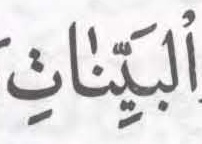 ٱلْبَيِّنَاتِ